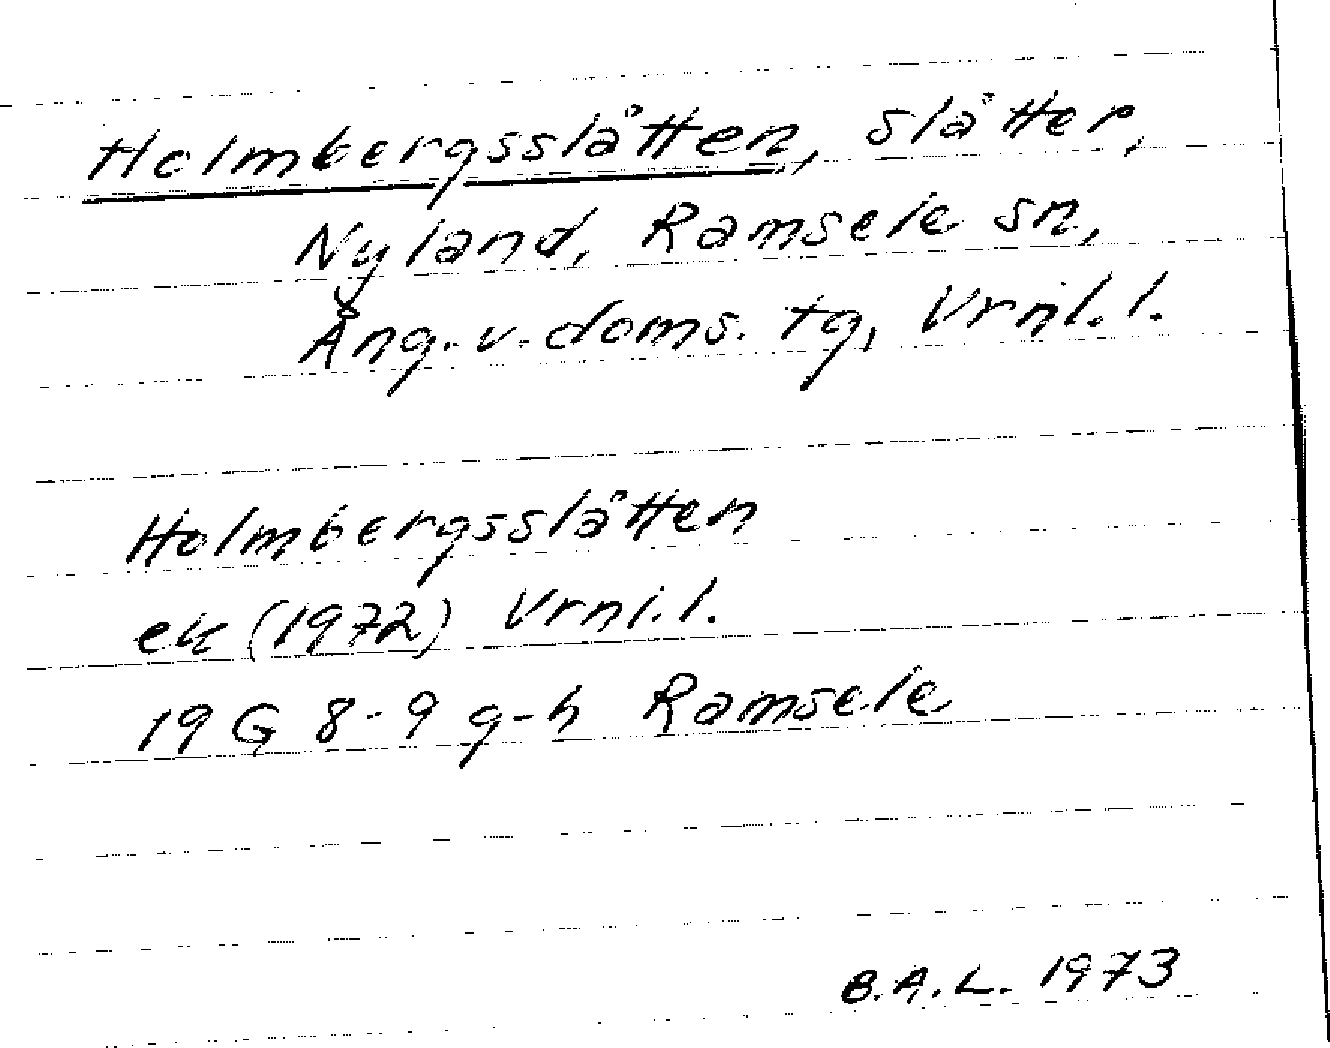 Holmbergsslätten, slätter,
Nyland, Ramsele sn,
Ång. v. doms. tg, Vrnl. l.
Holmbergsslätten
ek (1972) Vrnl. l.
19 G 8-9 g-h Ramsele
B.A.L. 1973